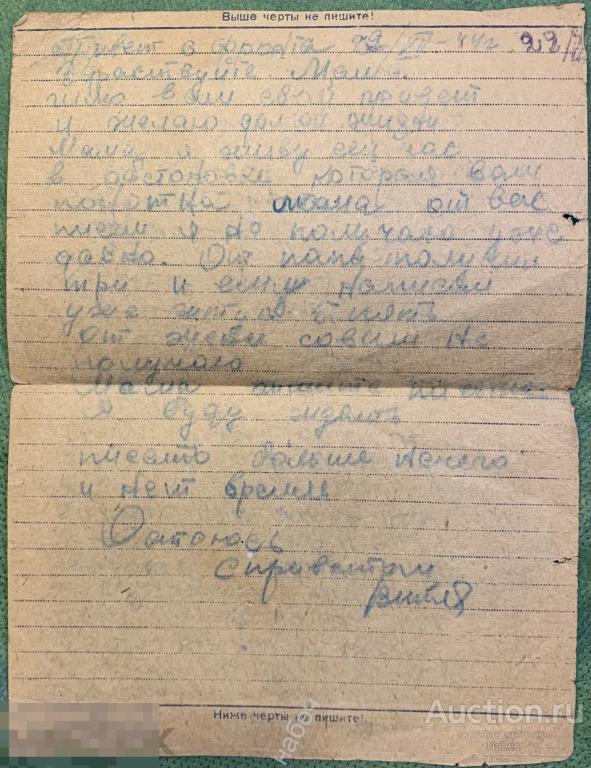 Выше черты не пишите!
Привет с фронта 22/VI-44г 22/
Здраствуйте Мама.
шлю вам свой привет
и желаю долгой жизни
Мама я живу сей час
в обстоновке которая вам
понятна Мама от вас
писем я не получаю уже
давно. От папы получил
три и ему написал
уже штук 5
От жени совсим не
получаю
Мама пишите письма
Я буду ждать
писать больше нечего
и нет время
Остаюсь
с приветом
Витя
Ниже черты не пишите!
набоч
Auction.ru
Nabec